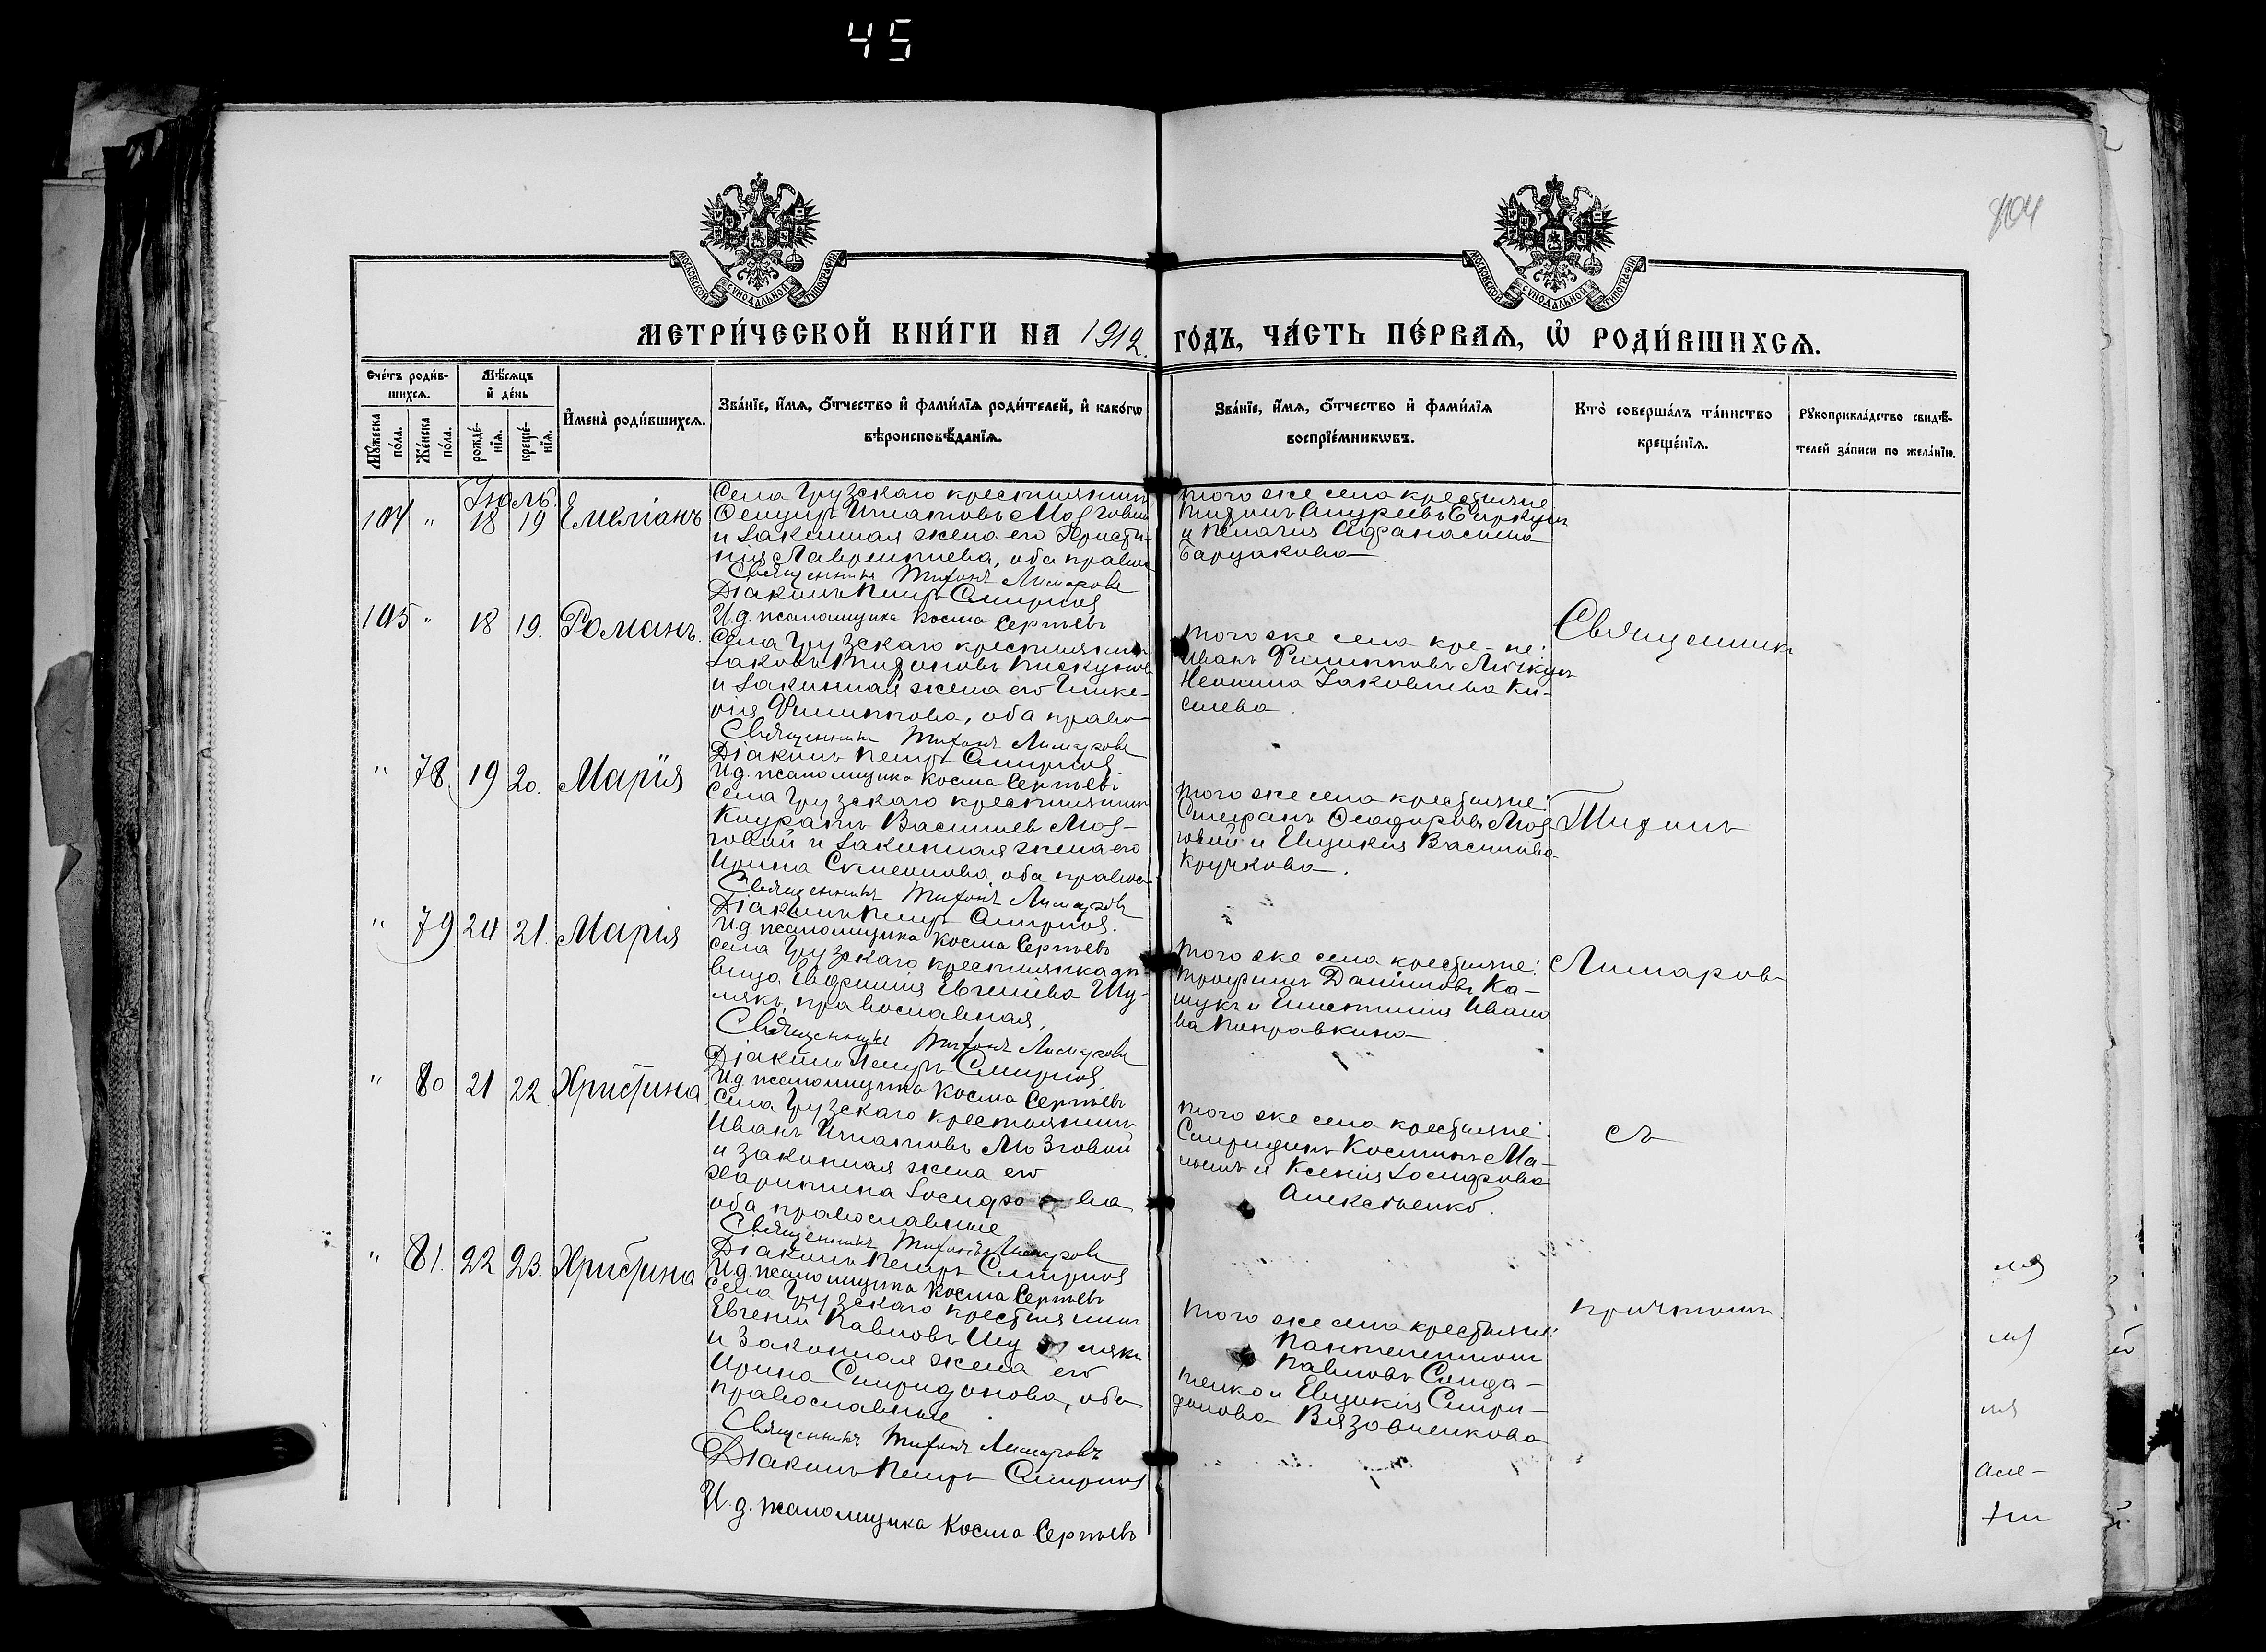 45
104
МОСКОВСКОЙ СѴНОДАЛЬНОЙ ТИПОГРАФІИ
МОСКОВСКОЙ СѴНОДАЛЬНОЙ ТИПОГРАФІИ
МЕТРИ́ЧЕСКОЙ КНИ́ГИ НА 1912 ГО́ДЪ, ЧА́СТЬ ПЕ́РВАѦ, Ѡ҆ РОДИ́ВШИХСѦ.
Сче́тъ роди́вшихсѧ.
Мꙋ́жеска по́ла.
Же́нска по́ла.
Мѣ́сѧцъ и҆ де́нь
рожде́нїѧ.
креще́нїѧ.
И҆мена̀ роди́вшихсѧ.
Зва́нїе, и҆́мѧ, ѻ҆́тчество и҆ фами́лїѧ роди́телей, и҆ како́гѡ
вѣроисповѣ́данїѧ.
Зва́нїе, и҆́мѧ, ѻ҆́тчество и҆ фами́лїѧ
воспрїе́мникѡвъ.
Кто̀ соверша́лъ та́инство
креще́нїѧ.
Рꙋкоприкла́дство свидѣ́-
телей за́писи по жела́нїю.
Іюль.
104 " 18 19 Емеліанъ
Села Грузскаго крестьянинъ
Игнатовъ Мозговой
и законная жена его Христи-
на Лаврентьева, оба правос
Священникъ Тихонъ Лимаровъ
Діаконъ Петръ Смирнов
И.д. псаломщика Косма Сергѣевъ
того же села крестьяне
и Пелагія Афанасьева
105 " 18 19. Романъ.
Села Грузскаго крестьянинъ
Іаковъ Тихоновъ Пискунов
и законная жена его Глике-
рія Филиппова, оба право
Священникъ Тихонъ Лимаровъ
Діаконъ Петръ Смирнов
И.д. псаломщика Косма Сергѣевъ
того же села кре-не:
Иванъ Филипповъ
Неонила Іаковлева Ки-
селева.
" 78. 19 20. Марія
Села Грузскаго крестьянинъ
Василиев Моз-
говой и законная жена его
Ирина оба правос
Священникъ Тихонъ Лимаровъ
Діаконъ Петръ Смирнов.
И.д. псаломщика Косма Сергѣевъ
того же села крестьяне:
Стефанъ Ѳеодоровъ Моз-
говой и Евдокія Василіева
Кручкова.
" 79 21. Марія
Села Грузскаго крестьянка дѣ-
вица Шу-
лякъ, православная.
Священникъ Тихонъ Лимаровъ
Діаконъ Петръ Смирнов
И.д. псаломщика Косма Сергѣевъ
того же села крестьяне:
Трофимъ Даниловъ Ка-
и Ивано
ва Поправкина
" 80 21 22. Христина
Села Грузскаго крестьянинъ
Иванъ Игнатовъ Мозговой
и законная жена его
Харитина Іосифова
оба православные
Священникъ Тихонъ Лимаровъ
Діаконъ Петръ Смирнов
И.д. псаломщика Косма Сергѣевъ
того же села крестьяне:
Спиридонъ Ма-
и Ксенія Іосифова
Алексѣенко.
" 81. 22 23. Христина
Села Грузскаго крестьянинъ
Евгеній Павловъ Шулякъ
и законная жена его
Ирина Спиридонова, оба
православные
Священникъ Тихонъ Лимаровъ
Діаконъ Петръ Смирнов
И.д. псаломщика Косма Сергѣевъ
того же села крестьяне:
Пантелеимонъ
Павловъ Солда-
тенко и Евдокія Спири-
донова Вязовченкова
Священникъ
Тихонъ
Лимаровъ
съ
причтомъ.